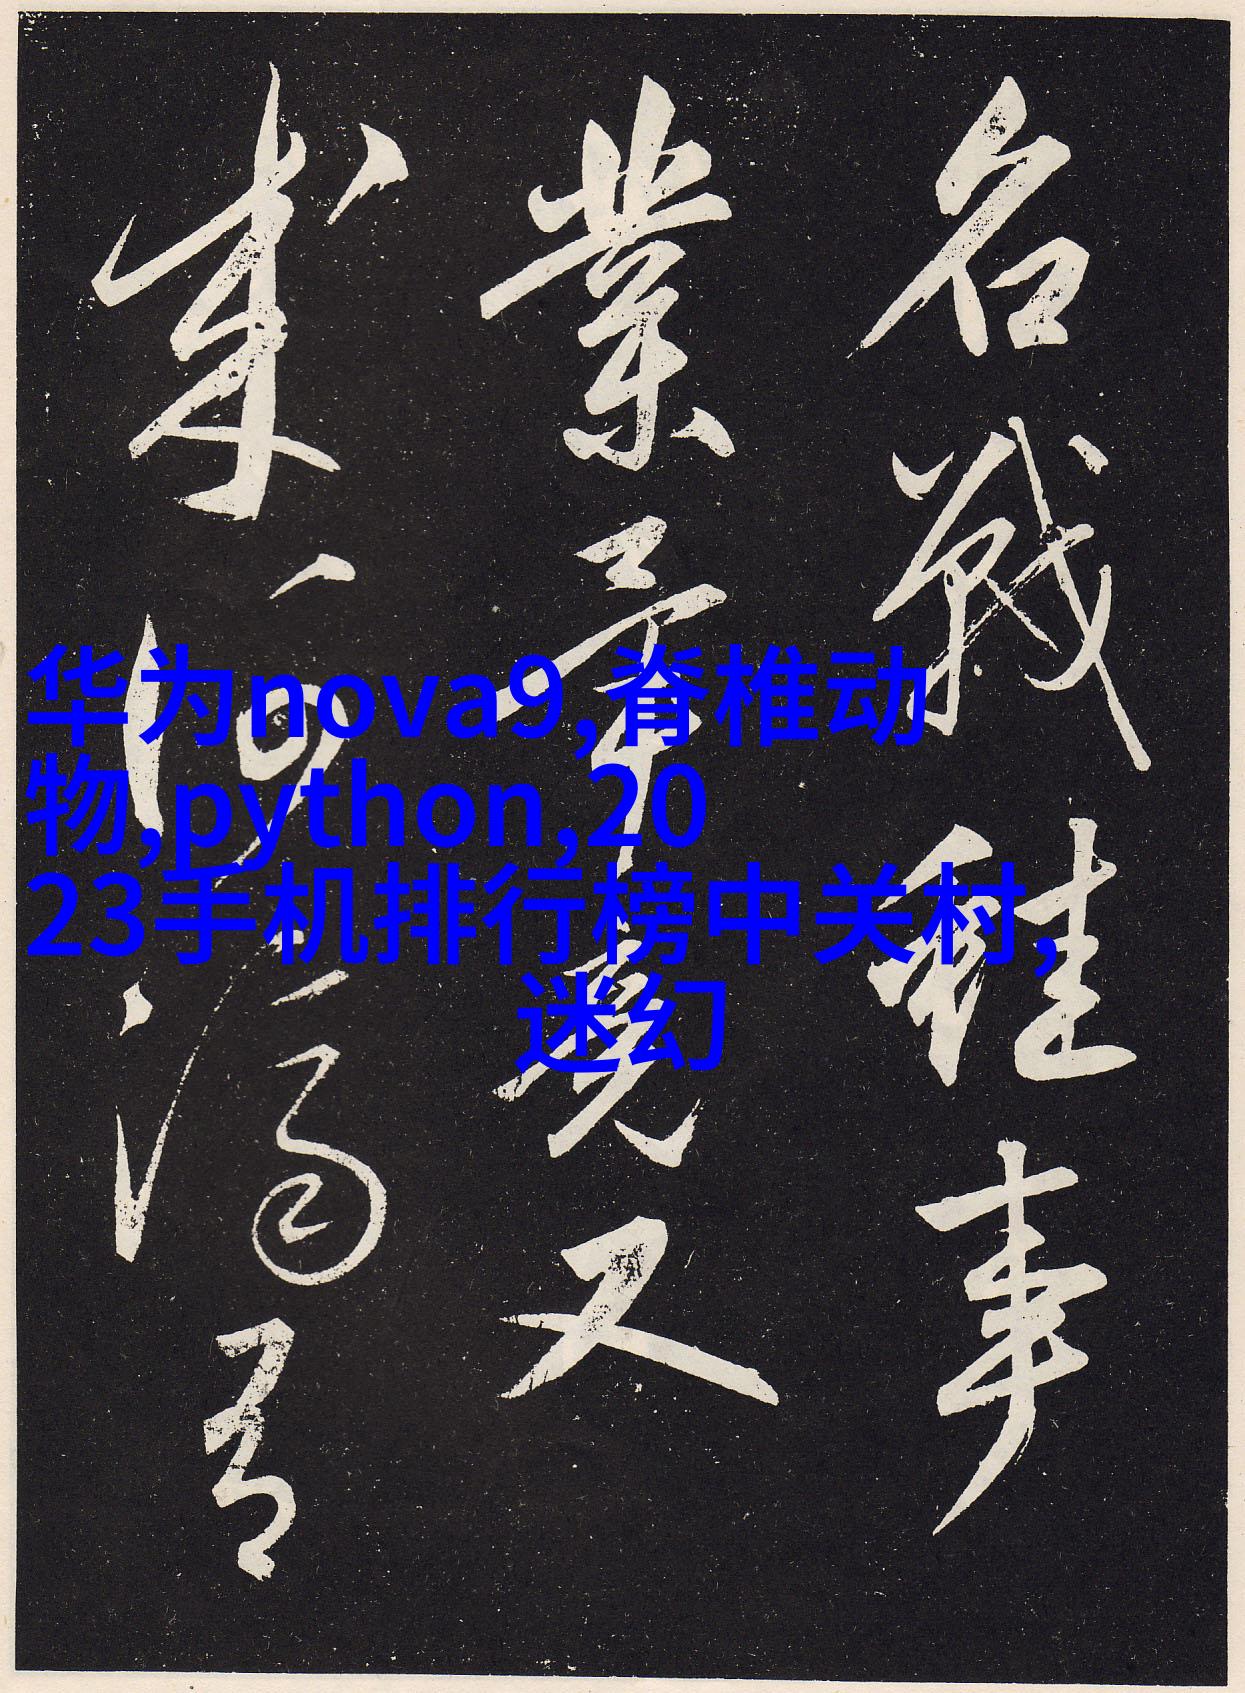 名戰事
業竟又
成何
华为nova9,脊椎动
物,python,20
23手机排行榜中关村,
迷幻